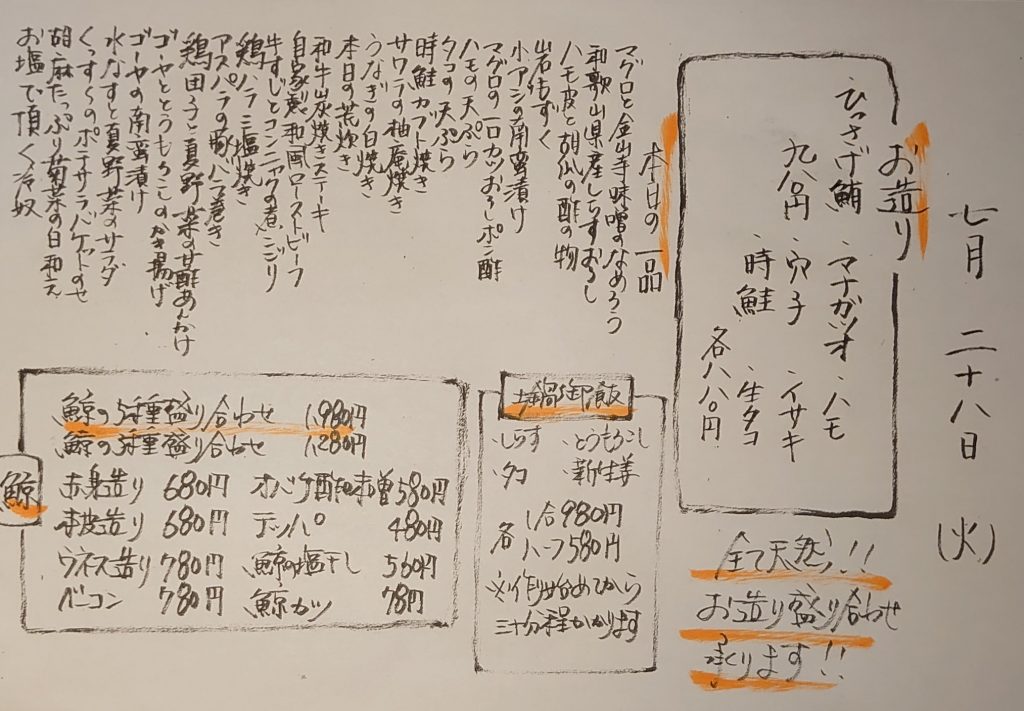 七月二十八日(火)
お造り
・ひっさげ鮪
九八〇円
・マナガツオ
・ハモ
・穴子
・イサキ
・時鮭
・生タコ
各八八〇円
全て天然!!
お造り盛り合わせ
承ります!!
本日の一品
マグロと金山寺味噌のなめろう
和歌山県産しらすおろし
ハモ皮と胡瓜の酢の物
岩もずく
小アジの南蛮漬け
マグロの一口カツおろしポン酢
ハモの天ぷら
タコの天ぷら
時鮭カブト焼き
サワラの柚庵焼き
うなぎの白焼き
本日の荒炊き
和牛炭焼きステーキ
自家製和風ローストビーフ
牛すじとコンニャクの煮こごり
鶏ハラミ塩焼き
アスパラの豚バラ巻き
鶏団子と夏野菜の甘酢あんかけ
ゴーヤととうもろこしのかき揚げ
ゴーヤの南蛮漬け
水なすと夏野菜のサラダ
くっすぐのポテサラバケットのせ
胡麻たっぷり菊菜の白和え
お塩で頂く冷奴
土鍋御飯
・しらす ・とうもろこし
・タコ ・新生姜
各 1合980円
ハーフ580円
※作り始めてから
三十分程かかります
鯨
鯨の5種盛り合わせ 1,980円
鯨の3種盛り合わせ 1,280円
赤身造り 680円 オバケ酢味噌 580円
本皮造り 680円 テッパ 480円
ウネス造り 780円 鯨の塩干し 560円
ベーコン 780円 鯨カツ 78円